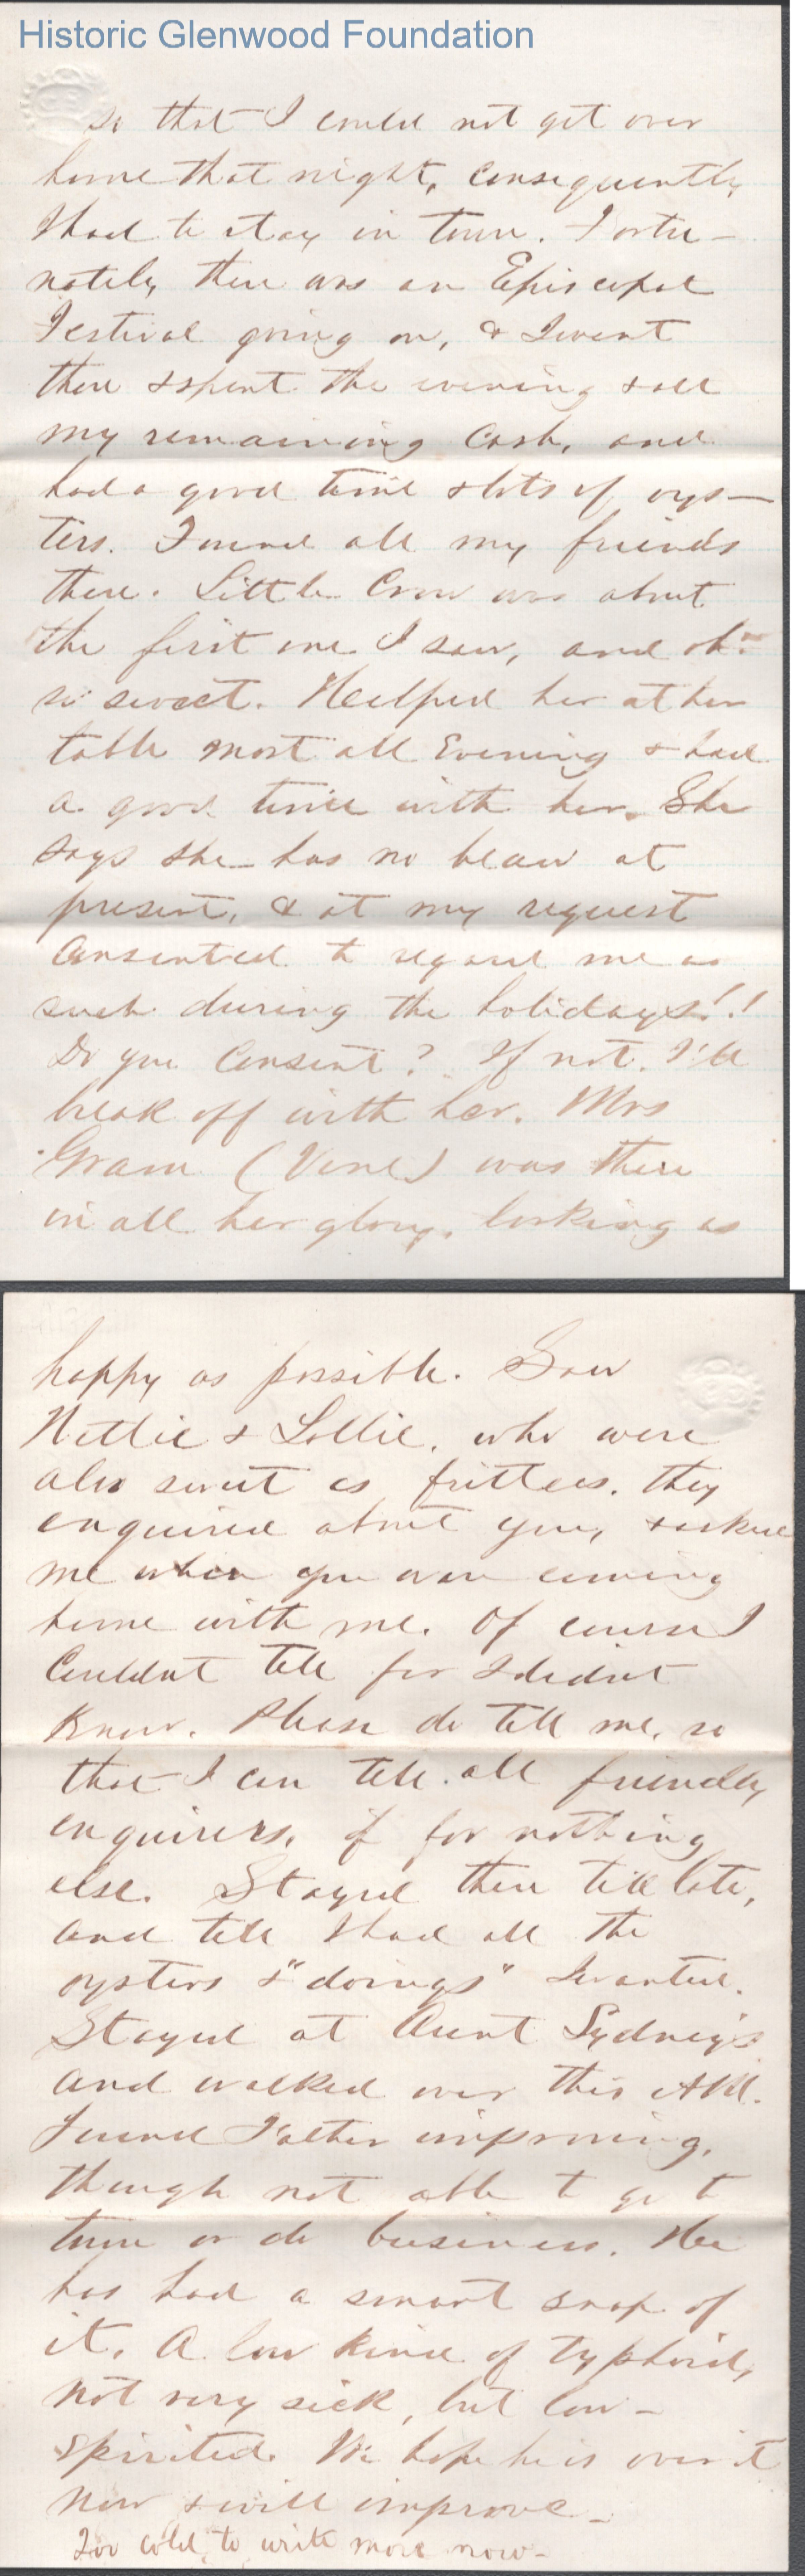 Historic Glenwood Foundation
So that I could not get over
home that night, consequently
I had to stay in town. Fortu-
nately, there was an Episcopal
Festival going on, & I went
there & spent the evening & all
my remaining cash, and
had a good time & lots of oys-
ters. Found all my friends
there. Little Crow was about
the first one I saw, and oh!
so sweet. Helped her at her
table most all Evening & had
a good time with her. She
says she has no beau at
present, & at my request
Consented to regard me as
such during the holidays!!
Do you Consent? If not, I'll
break off with her. Mrs
Gram (Vene) was there
in all her glory, looking as
happy as possible. Saw
Nettie & Lollie, who were
also sweet as fritters. they
enquired about you, & asked
me when you were coming
home with me. Of course I
Couldnt tell for I didnt
Know. Please do tell me, so
that I can tell all friendly
enquirers, if for nothing
else. Stayed there till late,
and till I had all the
oysters & "doings" I wanted.
Stayed at Aunt Sydney's
and walked over this AM.
Found Father improving,
though not able to go to
town or do business. He
has had a smart snap of
it. A low kind of typhoid,
not very sick, but low-
spirited. We hope he is over it
now & will improve-
Too cold, to write more now-